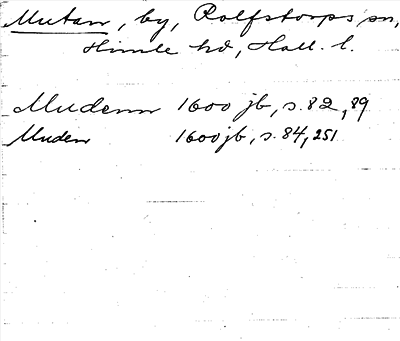 Mutan, by, Rolfstorps sn,
Himle hd, Hall. l.
Mudenn 1600 jb, s. 82, 89
Muden 1600 jb, s. 84, 251